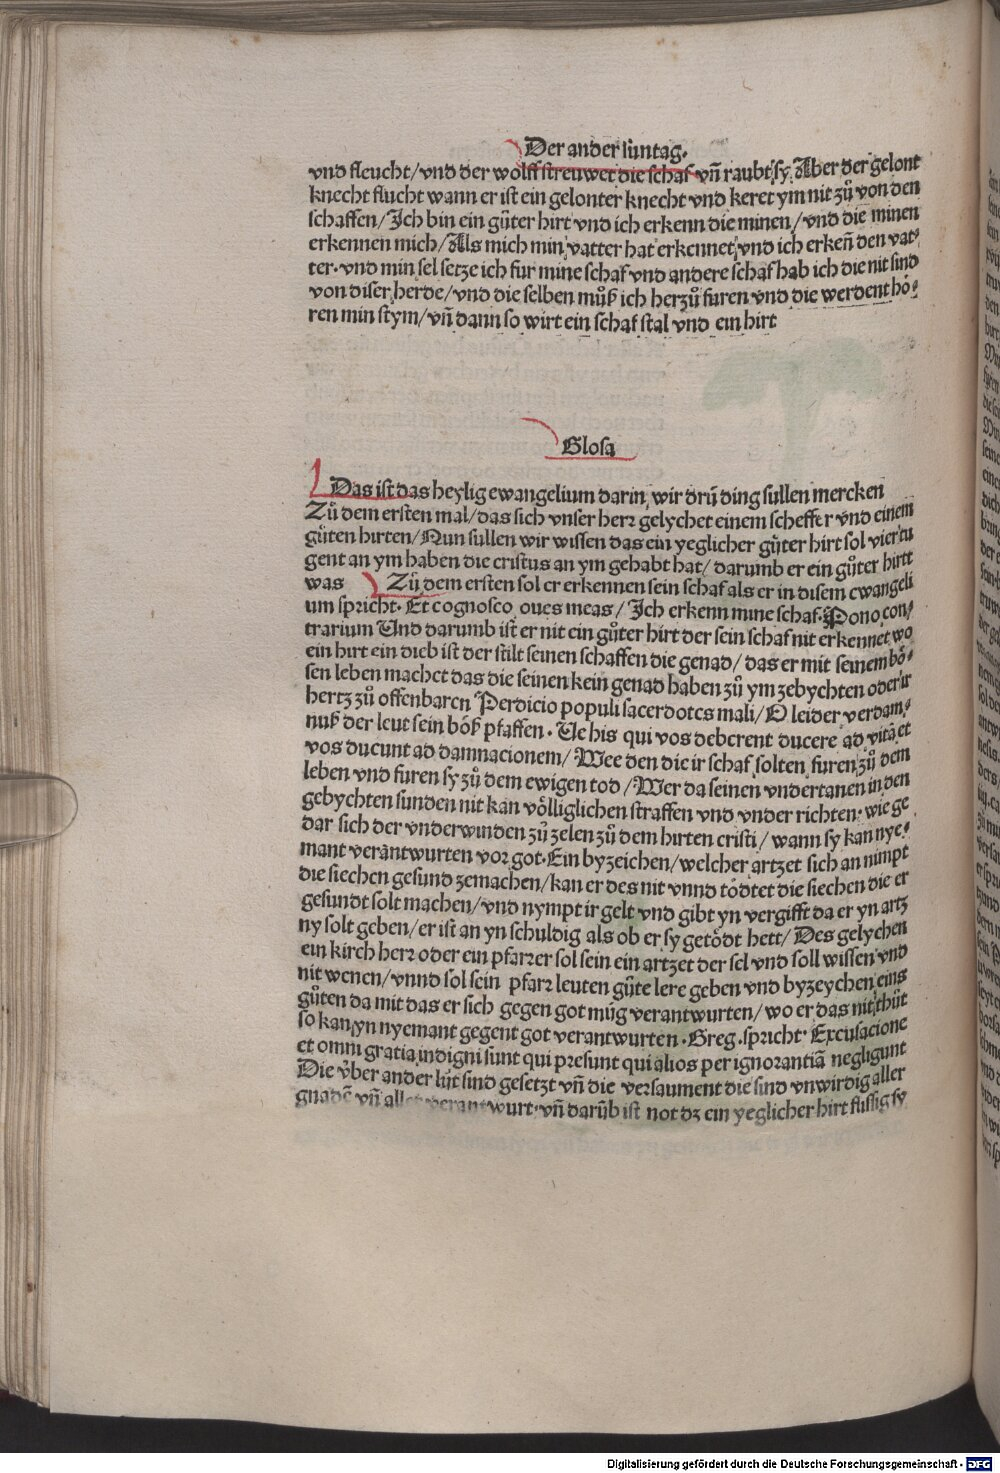 Der ander suntag.
vnd fleucht/vnd der wolff streuwet die schaf vn̄ raubt sy. Aber der gelont
knecht flucht wann er ist ein gelonter knecht vnd keret ym nit zů von den
schaffen/Ich bin ein gůter hirt vnd ich erkenn die minen/vnd die minen
erkennen mich/Als mich min vatter hat erkennet vnd ich erken̄ den vat⸗
ter. vnd min sel setze ich fur mine schaf vnd andere schaf hab ich die nit sind
von diser herde/vnd die selben můß ich herzů furen vnd die werdent hö⸗
ren min stym/vn̄ dann so wirt ein schaf stal vnd ein hirt
Glosa
Das ist das heylig ewangelium darin wir drü ding sullen mercken
Zů dem ersten mal/das sich vnser herr gelychet einem scheffer vnd einem
gůten hirten/Nun sullen wir wissen das ein yeglicher gůter hirt sol vier tu
gent an ym haben die cristus an ym gehabt hat/darumb er ein gůter hirtt
was Zů dem ersten sol er erkennen sein schaf als er in disem ewangeli
um spricht. Et cognosco oues meas/Ich erkenn mine schaf. Pono con⸗
trarium Vnd darumb ist er nit ein gůter hirt der sein schaf nit erkennet wo
ein hirt ein dieb ist der stilt seinen schaffen die genad/das er mit seinem bö⸗
sen leben machet das die seinen kein genad haben zů ym zebychten oder ir
hertz zů offenbaren Perdicio populi sacerdotes mali/O leider verdam⸗
nuß der leut sein böß pfaffen. Ve his qui vos deberent ducere ad vitā et
vos ducunt ad damnacionem/Wee den die ir schaf solten furen zů dem
leben vnd furen sy zů dem ewigen tod/Wer da seinen vndertanen in den
gebychten sunden nit kan völliglichen straffen vnd vnder richten. wie ge
dar sich der vnderwinden zů zelen zů dem hirten cristi/wann sy kan nye⸗
mant verantwurten vor got. Ein byzeichen/welcher artzet sich an nimpt
die siechen gesund zemachen/kan er des nit vnnd tödtet die siechen die er
gesundt solt machen/vnd nympt ir gelt vnd gibt yn vergifft da er yn artz
ny solt geben/er ist an yn schuldig als ob er sy getödt hett/Des gelychen
ein kirch herr oder ein pfarrer sol sein ein artzet der sel vnd soll wissen vnd
nit wenen/vnnd sol sein pfarr leuten gůte lere geben vnd byzeychen eins
gůten da mit das er sich gegen got müg verantwurten/wo er das nit thůt
so kan yn nyemant gegent got verantwurten. Greg. spricht. Excusacione
et omni gratia indigni sunt qui presunt qui alios per ignorantiā negligunt
Die über ander lüt sind gesetzt vn̄ die versaument die sind vnwirdig aller
gnadē vn̄ aller verantwurt. vn̄ darūb ist not dz ein yeglicher hirt flissig sy
Digitalisierung gefördert durch die Deutsche Forschungsgemeinschaft - DFG